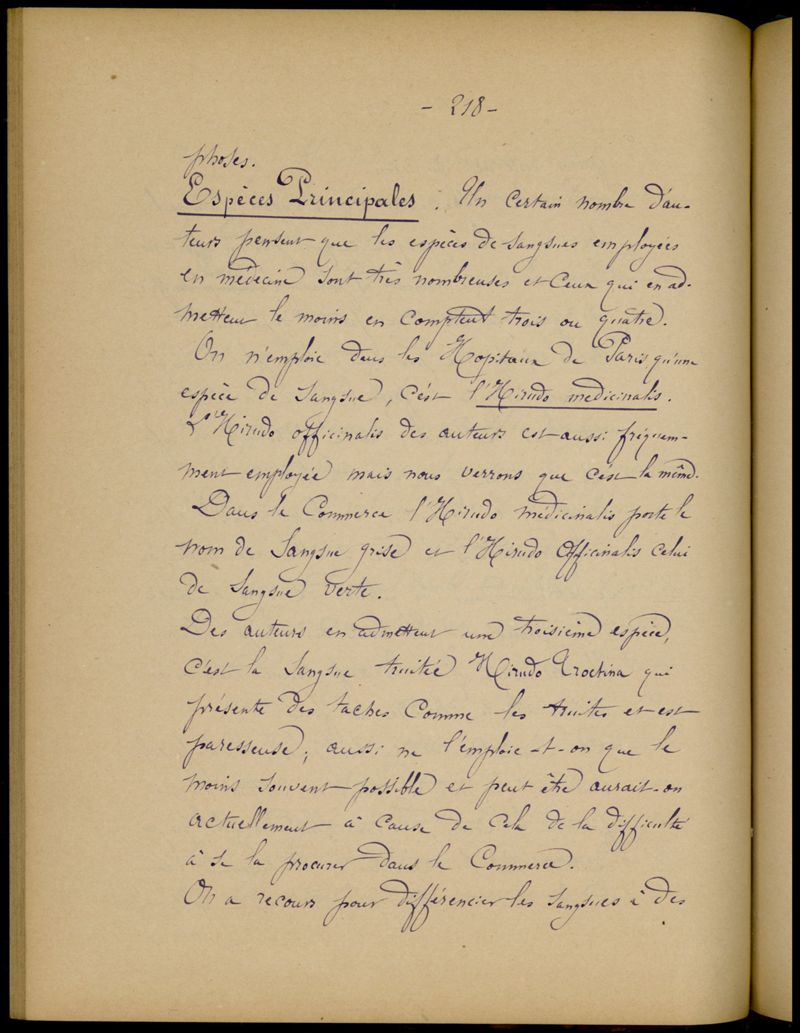 - 218 -
phoses.
Espèces Principales. Un certain nombre d'au-
teurs pensent que les espèces de sangsues employées
en médecine sont très nombreuses et ceux qui en ad-
mettent le moins en comptent trois ou quatre.
On n'emploie dans les Hopitaux de Paris qu'une
espèce de Sangsue, c'est l'Hirudo medicinalis.
L'Hirudo officinalis des auteurs est aussi fréquem-
ment employée mais nous verrons que c'est la même.
Dans le Commerce l'Hirudo médicinalis porte le
nom de Sangsue grise et l'Hirudo Officinalis celui
de Sangsue verte.
Des auteurs en admettent une troisième espèce,
c'est la Sangsue truitée Hirudo Troctina qui
présente des taches comme les truites et est
paresseuse; aussi ne l'emploie-t-on que le
moins souvent possible et peut être aurait-on
actuellement à cause de cela de la difficulté
à se la procurer dans le Commerce.
On a recours pour différencier les sangsues à des